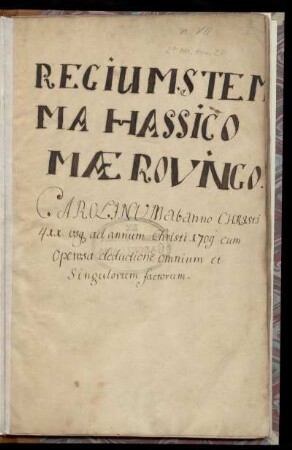 REGIUM STEM
MA HASSICO
MÆROVINGO.
CAROLINUM ab anno CHRISTI
411. usq ad annum Christi 1709 cum
Operosa deductione omnium et
Singulorum factorum.